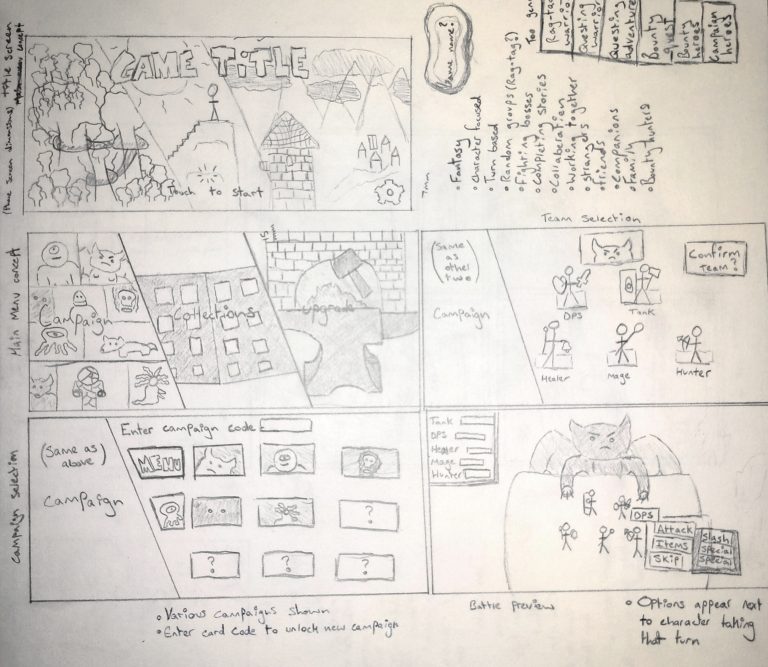 Title Screen
(Phone screen dimensions)
GAME TITLE
Touch to start
Game name?
7mm
Rag-tag warrio
Questing warrior
Questing adventure
Bounty quest
Bounty heroes
Campaign heroes
• Fantasy
• Character focused
• Turn based
• Random groups (Rag-tag?)
• Fighting bosses
• Completing stories
• Collaberation
• Working together
• Strangers
• friends
• Companions
• Family
• Bounty hunters
Main Menu concept
Campaign
Collections
Upgrade
Team Selection
(Same as other two)
Campaign
Confirm Team?
DPS
Tank
Healer
Mage
Hunter
Campaign selection
(Same as above)
Campaign
Enter campaign code
MENU
?
? ? ?
• Various campaigns shown
• Enter card code to unlock new campaign
Tank
DPS
Healer
Mage
Hunter
DPS
Attack
Items
Skip
Slash
Special
Special
Battle Preview
• Options appear next
to character taking
that turn